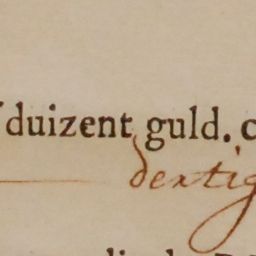 duizent guld. c
dertig